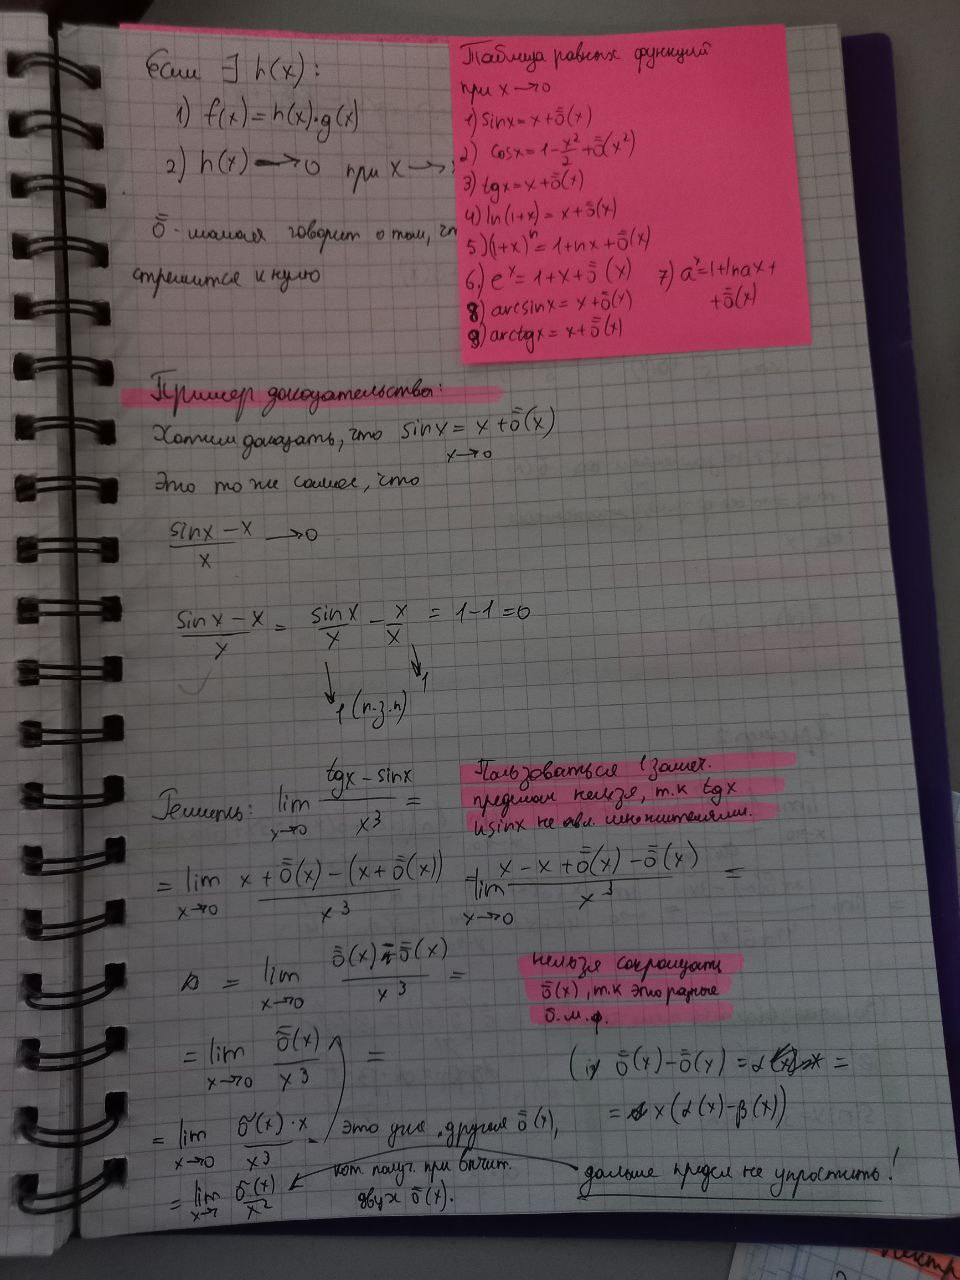 Если ∃ h(x):
1) f(x)=h(x)·g(x)
2) h(x) → 0 при x →
ō̄ - малая говорит о том, чт
стремится к нулю
Таблица равных функций
при x→0
1) sinx = x + ō̄(x)
2) cosx = 1 - x²/2 + ō̄(x²)
3) tgx = x + ō̄(x)
4) ln(1+x) = x + ō̄(x)
5) (1+x)ⁿ = 1 + nx + ō̄(x)
6) eˣ = 1 + x + ō̄(x) 7) aˣ = 1 + lnax +
+ ō̄(x)
8) arcsinx = x + ō̄(x)
9) arctgx = x + ō̄(x)
Пример доказательства:
Хотим доказать, что sinx = x + ō̄(x)
x→0
Это то же самое, что
(sinx - x)/x → 0
(sinx - x)/x = sinx/x - x/x = 1-1=0
1 (п.з.п) 1
Решить: lim x→0 (tgx - sinx)/x³ =
Пользоваться 1 замеч.
пределом нельзя, т.к tgx
и sinx не явл. множителями.
= lim x→0 (x + ō̄(x) - (x + ō̄(x)))/x³ = lim x→0 (x - x + ō̄(x) - ō̄(x))/x³ =
= lim x→0 (ō̄(x) - ō̄(x))/x³ =
нельзя сокращать
ō̄(x), т.к это разные
б.м.ф.
= lim x→0 ō̄(x)/x³ =
ō̄(x) - ō̄(x) =
= x(α(x) - β(x))
= lim x→0 ō(x)·x/x³
это уже другая ō̄(x),
кот. получ. при вычит.
двух ō̄(x).
= lim ō(x)/x²
дальше предел не упростить!